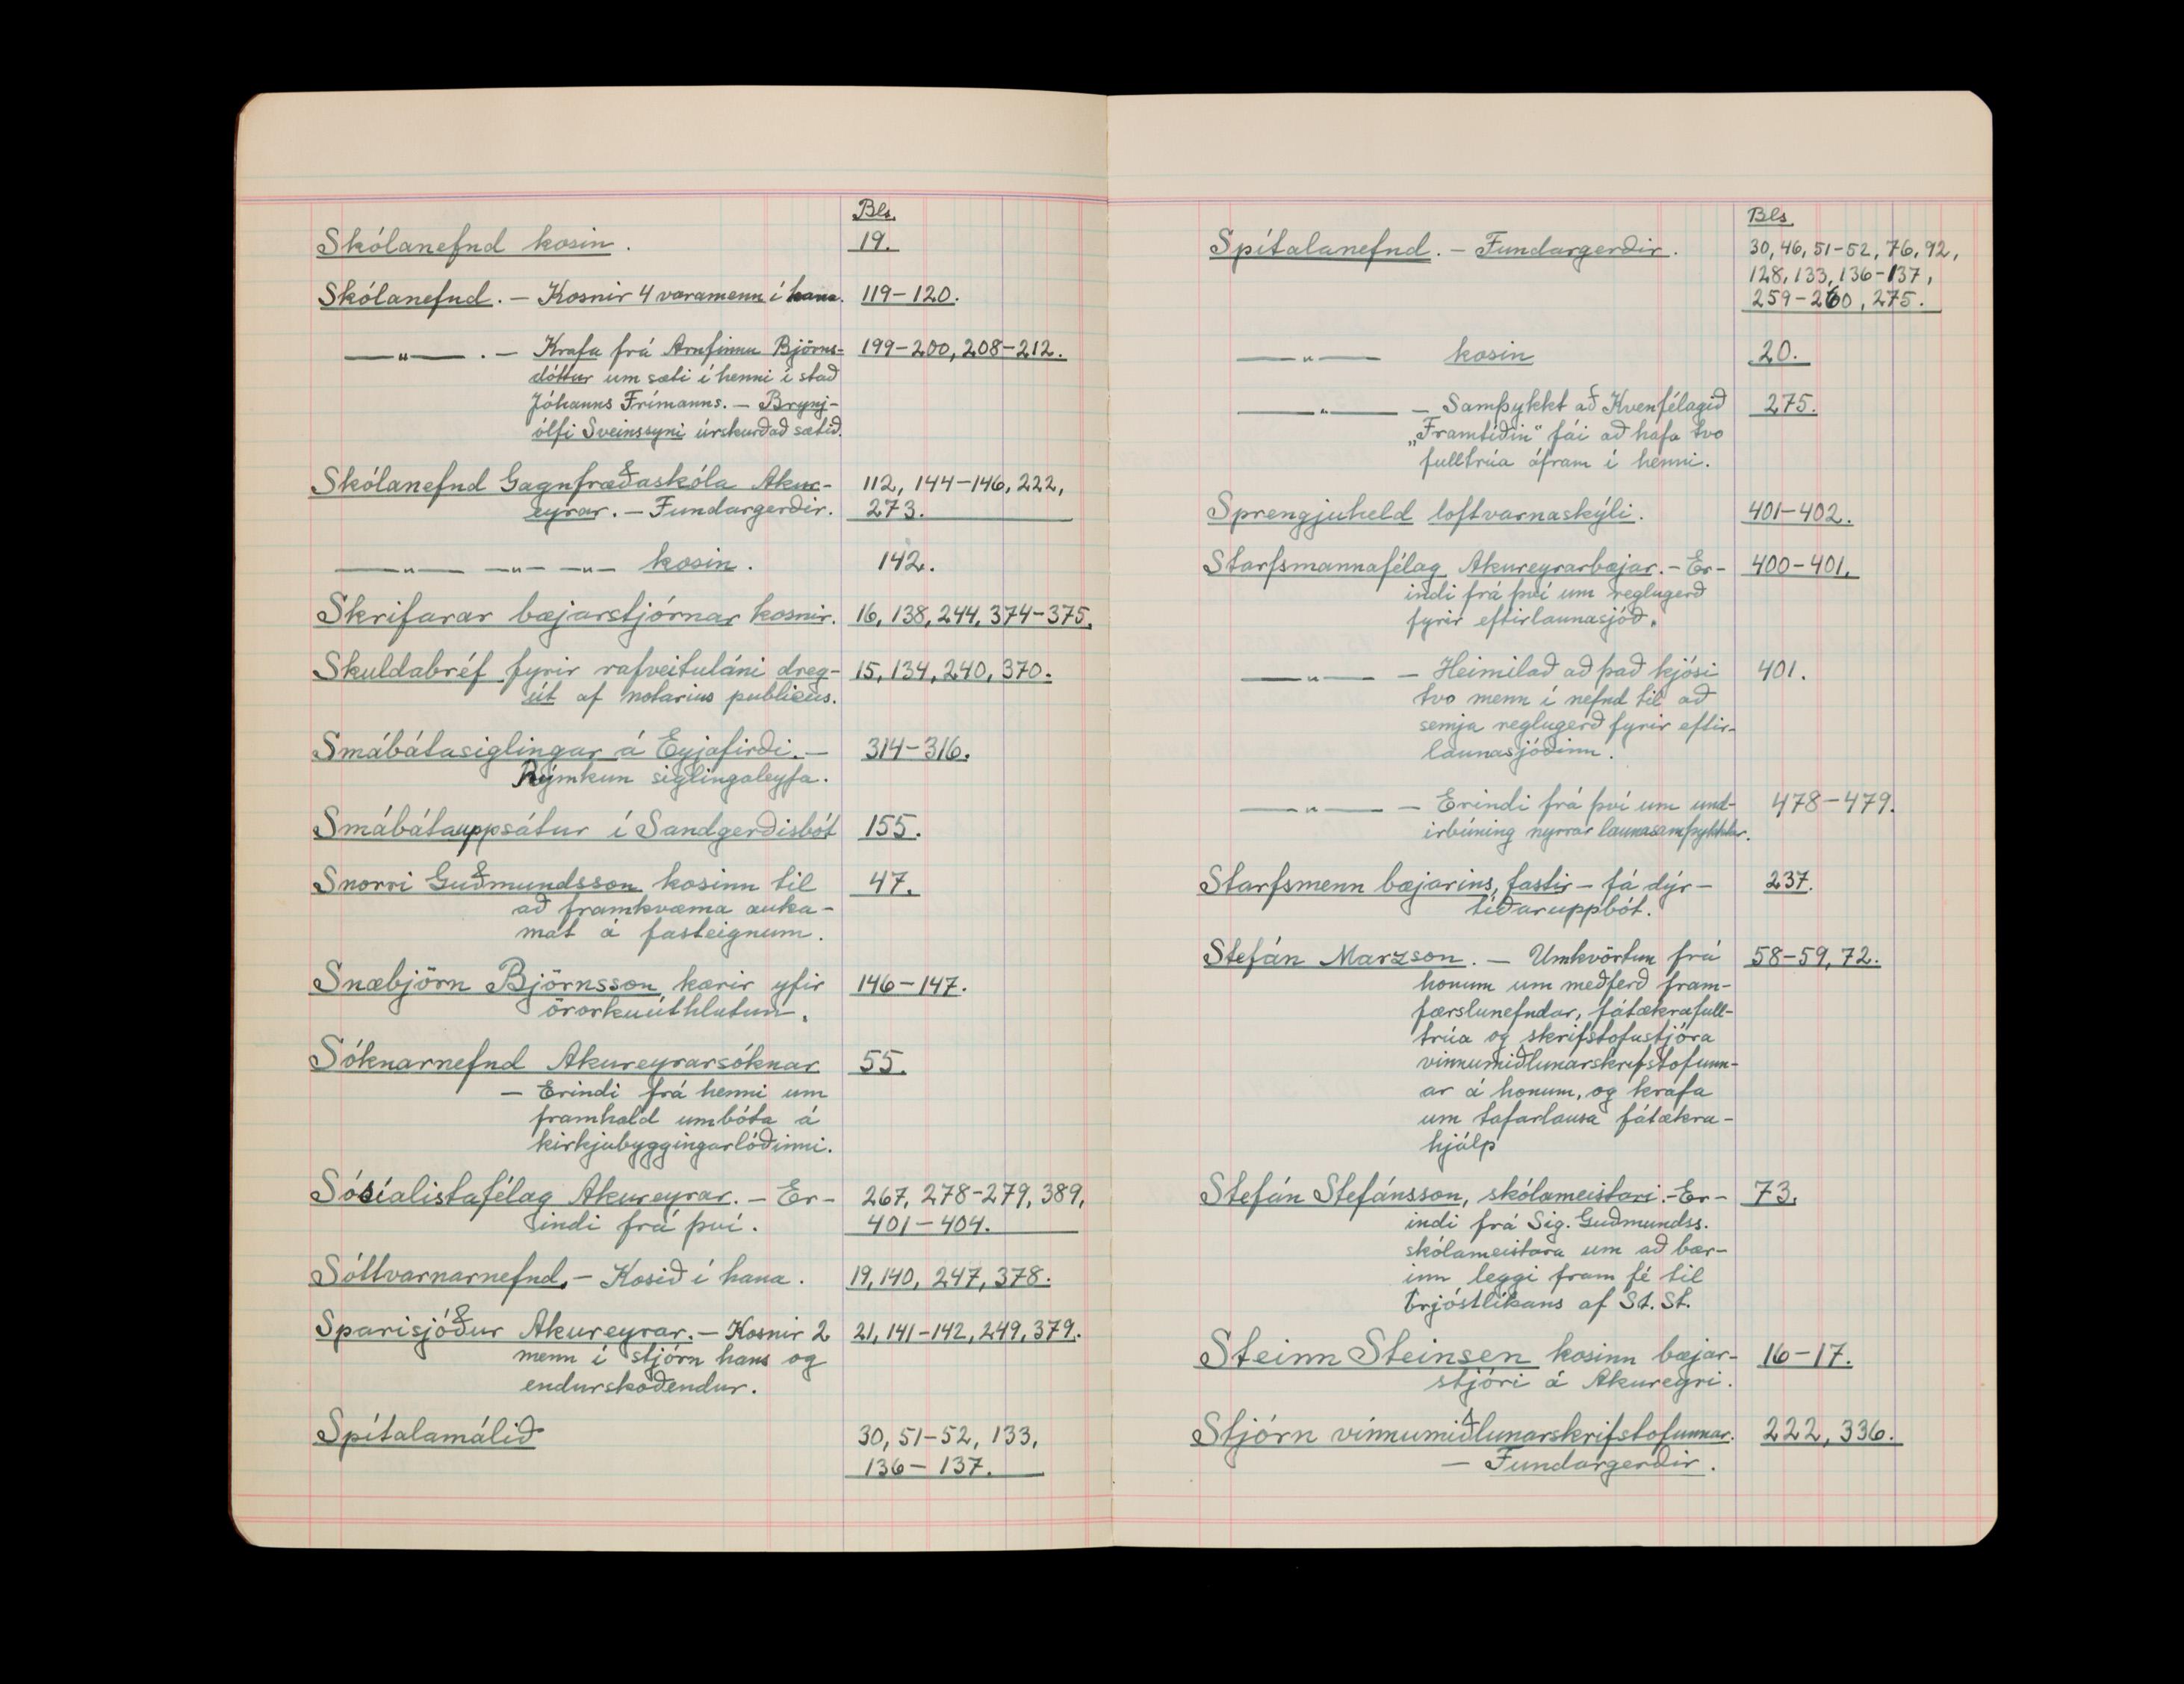 Bls.
Skólanefnd kosin. 19.
Skólanefnd. – Kosnir 4 varamenn í hana. 119–120.
—„— . – Krafa frá Arnfinnu Björns- 199–200, 208–212.
dóttur um sæti í henni í stað
Jóhanns Frímanns. – Brynj-
ólfi Sveinssyni úrskurðað sætið.
Skólanefnd Gagnfræðaskóla Akur- 112, 144–146, 222,
eyrar. – Fundargerðir. 273.
—„— —„— —„— kosin. 142.
Skrifarar bæjarstjórnar kosnir. 16, 138, 244, 374–375.
Skuldabréf fyrir rafveituláni dreg- 15, 134, 240, 370.
út af notarius publicus.
Smábátasiglingar á Eyjafirði. – 314–316.
Rýmkun siglingaleyfa.
Smábátauppsátur í Sandgerðisbót 155.
Snorri Guðmundsson kosinn til 47.
að framkvæma auka-
mat á fasteignum.
Snæbjörn Björnsson kærir yfir 146–147.
örorkuúthlutun.
Sóknarnefnd Akureyrarsóknar 55.
– Erindi frá henni um
framhald umbóta á
kirkjubyggingarlóðinni.
Sósíalistafélag Akureyrar. – Er- 267, 278–279, 389,
indi frá því. 401–404.
Sóttvarnarnefnd. – Kosið í hana. 19, 140, 247, 378.
Sparisjóður Akureyrar. – Kosnir 2 21, 141–142, 249, 379.
menn í stjórn hans og
endurskoðendur.
Spítalamálið 30, 51–52, 133,
136–137.
Bls.
Spítalanefnd. – Fundargerðir. 30, 46, 51–52, 76, 92,
128, 133, 136–137,
259–260, 275.
—„— kosin 20.
—„— – Samþykkt að Kvenfélagið 275.
„Framtíðin“ fái að hafa tvo
fulltrúa áfram í henni.
Sprengjuheld loftvarnaskýli. 401–402.
Starfsmannafélag Akureyrarbæjar. – Er- 400–401.
indi frá því um reglugerð
fyrir eftirlaunasjóð.
—„— – Heimilað að það kjósi 401.
tvo menn í nefnd til að
semja reglugerð fyrir eftir-
launasjóðinn.
—„— – Erindi frá því um und- 478–479.
irbúning nýrrar launasamþykktar.
Starfsmenn bæjarins, fastir – fá dýr- 237.
tíðaruppbót.
Stefán Marzson. – Umkvörtun frá 58–59, 72.
honum um meðferð fram-
færslunefndar, fátækrafull-
trúa og skrifstofustjóra
vinnumiðlunarskrifstofunn-
ar á honum, og krafa
um tafarlausa fátækra-
hjálp
Stefán Stefánsson, skólameistari. – Er- 73.
indi frá Sig. Guðmundss.
skólameistara um að bær-
inn leggi fram fé til
brjóstlíkans af St. St.
Steinn Steinsen kosinn bæjar- 16–17.
stjóri á Akureyri.
Stjórn vinnumiðlunarskrifstofunnar. 222, 336.
– Fundargerðir.